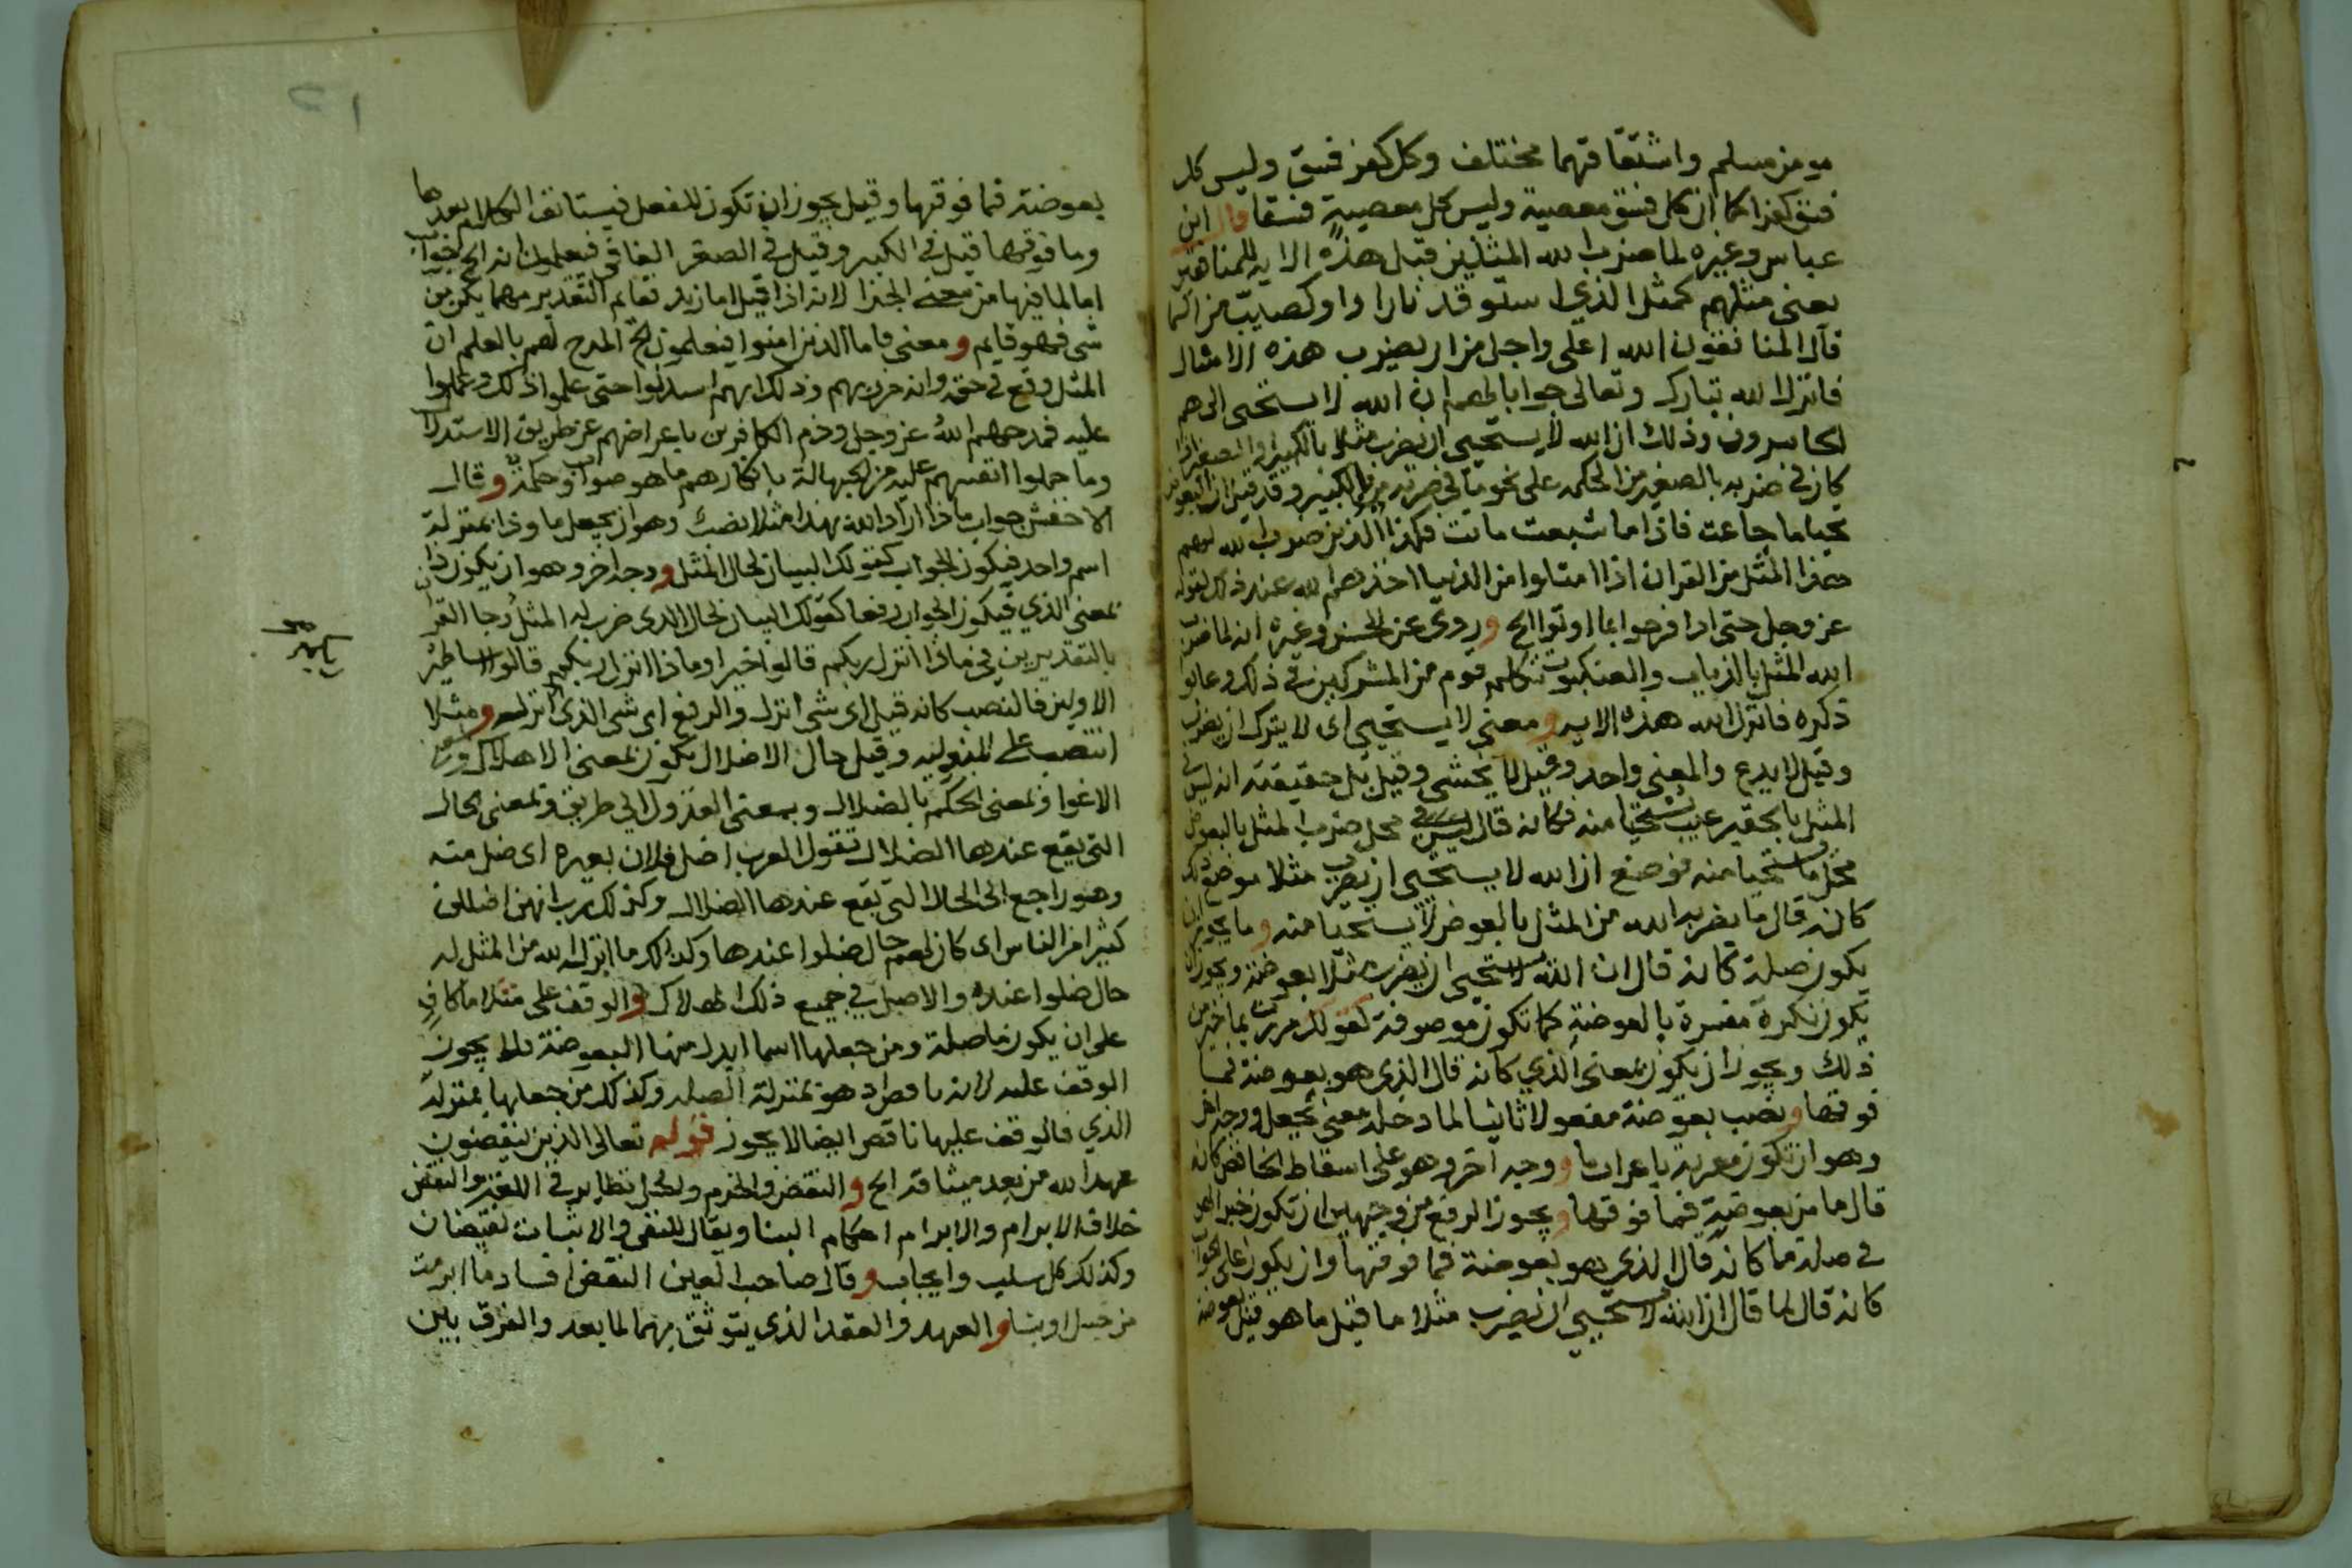 مومن مسلم واشتقاقهما مختلف وكل كفر فسق وليس كل
فسق كفرا كما ان كل فسق معصية وليس كل معصية فسقا قال ابن
عباس وغيره لما ضرب الله المثلين قبل هذه الاية للمنافقين
يعني مثلهم كمثل الذي استوقد نارا او كصيب من السما
قال المنافقون الله اعلى واجل من ان يضرب هذه الامثال
فانزل الله تبارك وتعالى جوابا لهم ان الله لا يستحيى الى هم
الخاسرون وذلك ان الله لا يستحيي ان يضرب مثلا بالكبير والصغير اذا
كان في ضربه بالصغير من الحكمة على نحو ما في ضربه بالكبير وقد قيل ان البعوضة
تحيا ما جاعت فاذا ما شبعت ماتت فكهذا الذين ضرب الله لهم
هذا المثل من القران اذا امتلوا من الدنيا اخذهم الله عند ذلك لقوله
عز وجل حتى اذا فرحوا بما اوتوا الخ وروى عن الحسن وغيره انه لما ضرب
الله المثل بالذباب والعنكبوت تكلم قوم من المشركين في ذلك وعابوا
ذكره فانزل الله هذه الاية ومعنى لا يستحيي اى لا يترك ان يضرب
وقيل لا يدع والمعنى واحد وقيل لا يخشى وقيل بل حقيقته انه ليس في
المثل بالحقير عيب يستحيا منه فكانه قال ليس في محل ضرب المثل بالبعوض
محل ما يستحيا منه فوضع ان الله لا يستحيي ان يضرب مثلا موضع ذلك
كانه قال ما يضربه الله من المثل بالبعوض لا يستحيا منه وما يجوز ان
يكون صلة كانه قال ان الله لا يستحيي ان يضرب مثلا بعوضة ويجوز ان
يكون نكرة مفسرة بالبعوضة كما تكون موصوفة كقولك مررت بما خير من
ذلك ويجوز ان يكون بمعنى الذي كانه قال الذي هو بعوضة فما
فوقها ونصب بعوضة مفعولا ثانيا لما دخله معنى يجعل ووجه اخر
وهو ان تكون معربة باعراب ما ووجه اخر وهو على اسقاط الخافض كانه
قال ما من بعوضة فما فوقها ويجوز الرفع من وجهين ان تكون خبرا لهو
في صلة ما كانه قال الذي هو بعوضة فما فوقها وان يكون على الجواب
كانه قال لما قال ان الله لا يستحيي ان يضرب مثلا ما قيل ما هو قيل بعوضة
بعوضة فما فوقها وقيل يجوز ان تكون للفعل فيستانف الكلام بعدها
وما فوقها قيل في الكبير وقيل في الصغر الفا في فيعلمون انه الخ لجواب
اما لما فيها من معنى الجزا لانه اذا قيل اما زيد فقايم التقدير مهما يكن من
شي فهو قايم ومعنى فاما الذين امنوا فيعلمون الخ المدح لهم بالعلم ان
المثل وقع في حقه وانه من ربهم وذلك انهم استدلوا حتى علموا ذلك وعملوا
عليه فمدحهم الله عز وجل وذم الكافرين باعراضهم عن طريق الاستدلال
وما حملوا انفسهم عليه من الجهالة بانكارهم ما هو صواب وحكمة وقال
الاخفش جواب ماذا اراد الله بهذا مثلا نصب وهو ان يجعل ما وذا بمنزلة
اسم واحد فيكون الجواب كقولك البيان لحال المثل ووجه اخر وهو ان يكون ذا
بمعنى الذي فيكون الجواب رفعا كقولك البيان لحال الذى ضرب له المثل وجا القران
بالتقديرين في ماذا انزل ربكم قالوا خيرا وماذا انزل ربكم قالوا اساطير
الاولين فالنصب كانه قيل اى شى انزل والرفع اى شى الذى انزله ومثلا
انتصب على وقيل حال الاضلال يكون بمعنى الاهلاك
الاغوا وبمعنى الحكم بالضلال وبمعنى العدول الى طريق وبمعنى الحال
التي يقع عندها الضلال تقول العرب اضل فلان بعيره اى ضل منه
وهو راجع الى الحال التي تقع عندها الضلال وكذلك رب انهن اضللن
كثيرا من الناس اى كان لهم حال ضلوا عندها وكذلك ما انزل الله من المثل له
حال ضلوا عنده والاصل في جميع ذلك الهلاك والوقف على مثلا ما كاف
على ان يكون ما صلة ومن جعلها اسما ابدل منها البعوضة فلا يجوز
الوقف عليه لانه هو بمنزلة الصلة وكذلك من جعلها بمنزلة
الذي فالوقف عليها ناقص ايضا لا يجوز قوله تعالى الذين ينقضون
عهد الله من بعد ميثاقه الخ والنقض والخرم والحل نظاير في اللغة والنقض
خلاف الابرام والابرام احكام البنا ويقال للنفي والاثبات نقيضان
وكذلك كل سلب وايجاب وقال صاحب العين النقض افساد ما ابرمت
من حبل او بنا والعهد والعقد الذي يتوثق بهما لما بعد والفرق بين